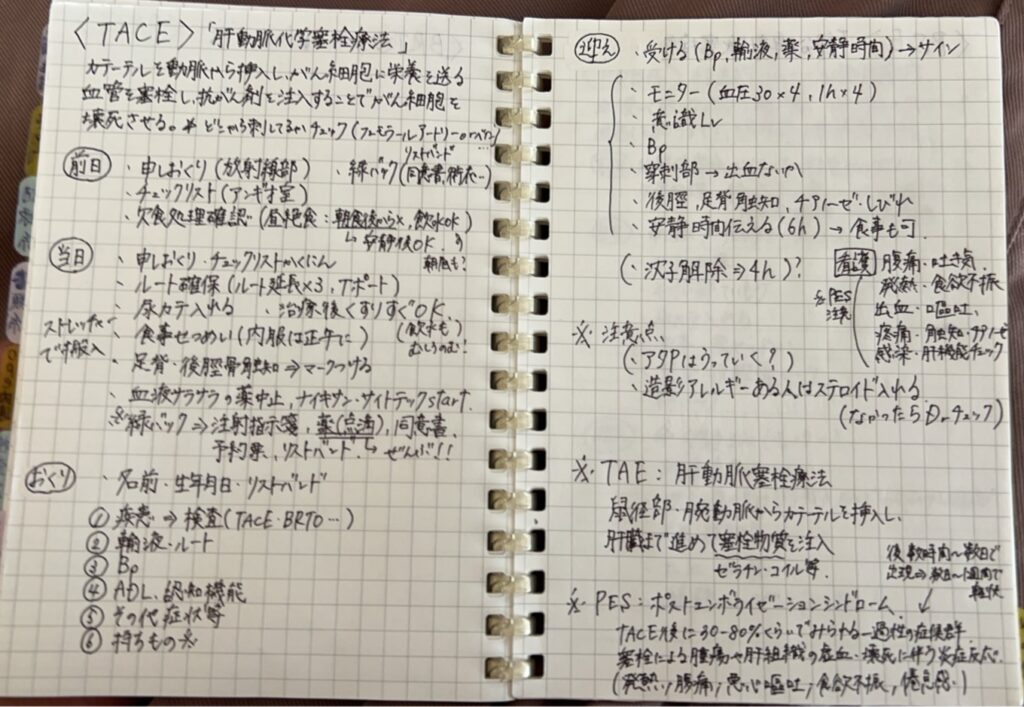 〈TACE〉「肝動脈化学塞栓療法」
カテーテルを動脈から挿入し、がん細胞に栄養を送る
血管を塞栓し、抗がん剤を注入することでがん細胞を
壊死させる。※どこから刺してるかチェック(フェモラールアートリーor
リストバンド
前日 ・申しおくり(放射線部) ・緑バック(同意書、術衣…)
・チェックリスト(アンギオ室)
・欠食処理確認(昼絶食:朝食後から×、飲水OK)
↳安静後OK.
朝昼も?
当日 ・申しおくり・チェックリストかくにん
・ルート確保(ルート延長×3、Tポート)
・尿カテ入れる ・治療後くすりすぐOK.
ストレッチャーで搬入
・食事せつめい(内服は正午に) (飲水も)むしろのむ!
・足背・後脛骨触知⇒マークつける
・血液サラサラの薬中止、ナイキサン・サイトテックstart.
※緑バック⇒注射指示簿、薬(点滴)、同意書、
予約票、リストバンド. ↳ぜんぶ!!
おくり ・名前・生年月日・リストバンド
① 疾患⇒検査(TACE・BRTO…)
② 輸液・ルート
③ Bp
④ ADL、認知機能
⑤ その他症状等
⑥ 持ちもの※
迎え ・受ける(Bp、輸液、薬、安静時間)→サイン
・モニター(血圧30×4、1h×4)
・意識Lv
・Bp
・穿刺部→出血ないか
・後脛、足背触知、チアノーゼ・しびれ
・安静時間伝える(6h)→食事も可.
(・次子解除⇒4h)?
看護 腹痛・吐き気
発熱・食欲不振
出血・嘔吐.
疼痛・触知・チアノーゼ
感染・肝機能チェック
※PES注意
※ 注意点.
(・アタPはうっていく?)
・造影アレルギーある人はステロイド入れる
(なかったらDr.チェック)
※ TAE:肝動脈塞栓療法
鼠径部・腕動脈からカテーテルを挿入し、
肝臓まで進めて塞栓物質を注入
ゼラチン・コイル等.
後数時間〜数日で
出現⇒数日〜1週間で
軽快
※ PES:ポストエンボライゼーションシンドローム
TACE後に30-80%くらいでみられる一過性の症候群.
塞栓による腫瘍や肝組織の虚血・壊死に伴う炎症反応.
(発熱、腹痛、悪心嘔吐、食欲不振、倦怠感.)